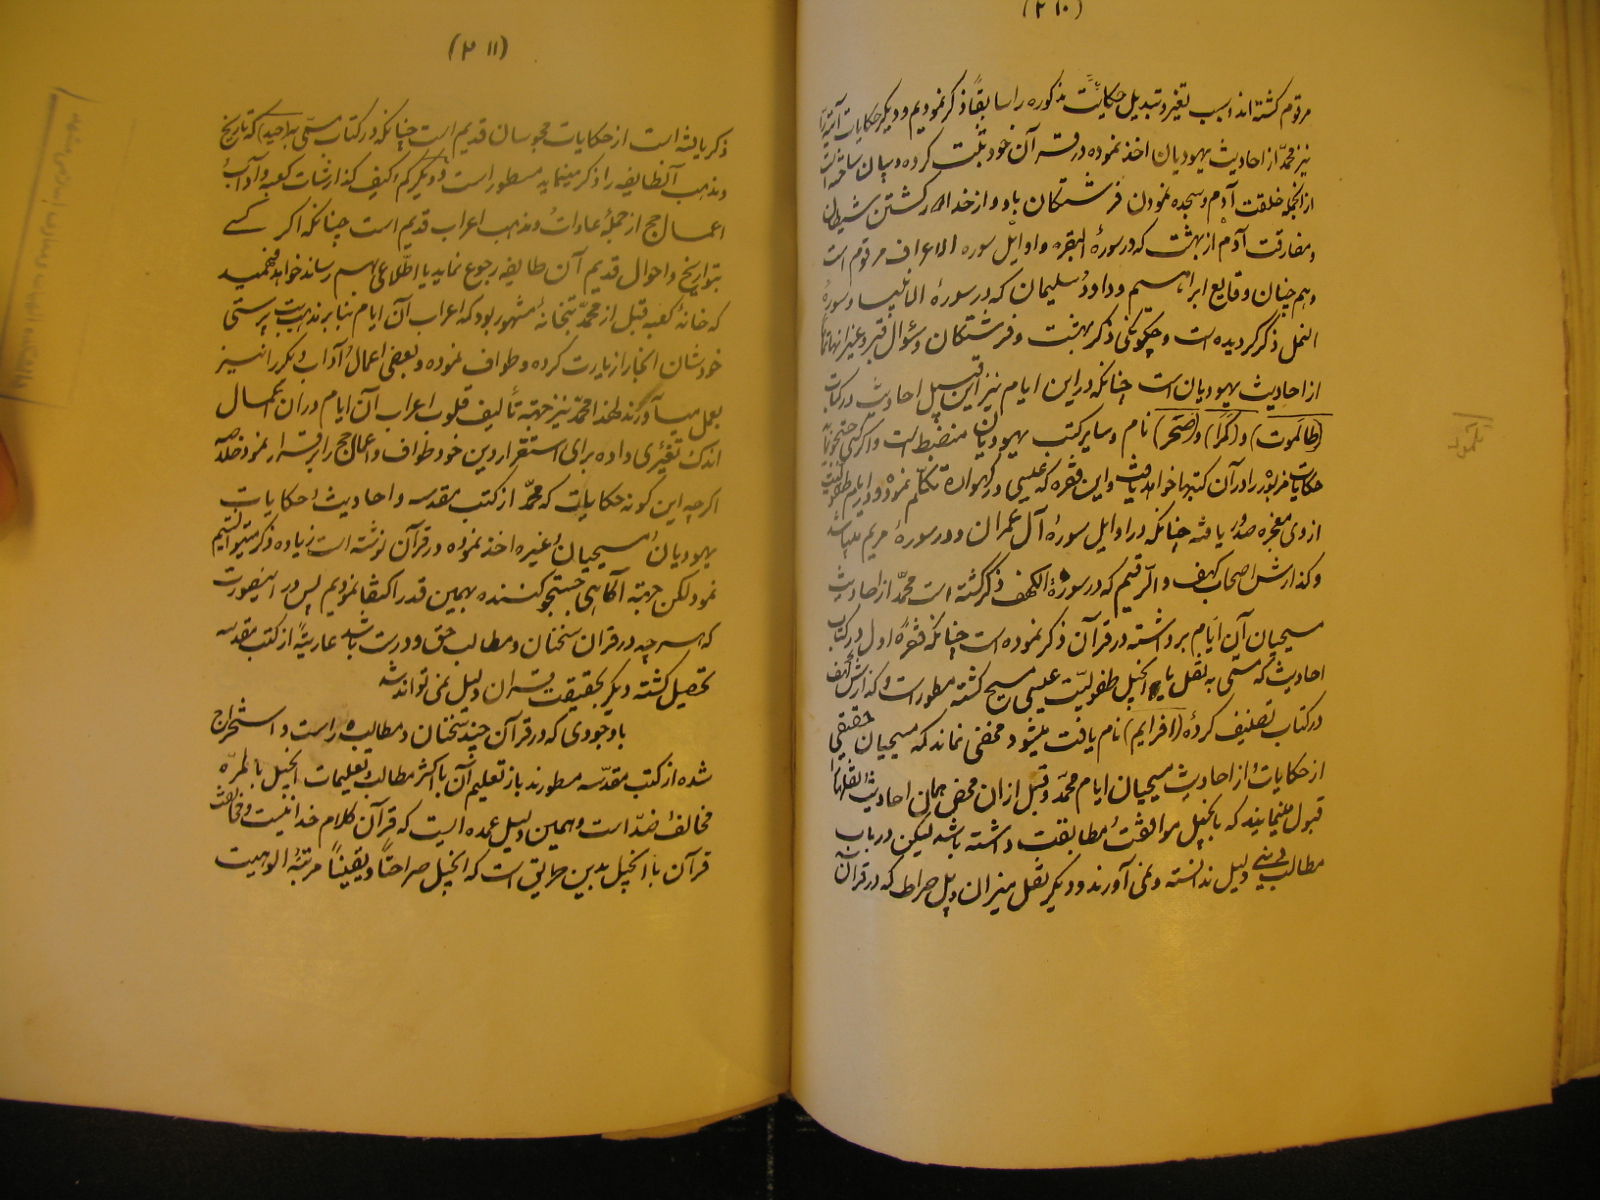 (۲۱۰)
مرقوم گشته‌اند سبب تغیر و تبدیل حکایت مذکوره را سابقاً ذکر نمودیم و دیگر حکایات
نیز محمّد از احادیث یهودیان اخذ نموده در قرآن خود ثبت کرده و بیان ساخته است
از انجمله خلقت آدم و سجده نمودن فرشتگان باو و از خدا برگشتن شیطان
و مفارقت آدم از بهشت که در سورهٔ البقره و اوایل سوره الاعراف مرقوم است
و هم چنان وقایع ابراهیم و داود و سلیمان که در سورهٔ الانبیا و سورهٔ
النمل ذکر گردیده است و چگونگی ذکر بهشت و فرشتگان و سؤال قبر و غیر نهاتماماً
از احادیث یهودیان است چنانکه در این ایام نیز این قبیل احادیث در کتاب
(طالموت) و (کمرا) و (صحر) نام و سایر کتب یهودیان منضبط است و اگر کسی جستجو نماید
حکایت مزبوره را در آن کتبها خواهد یافت و این فقره که عیسی در گهواره تکلّم نموده و در ایام طفولیّت
از وی معجزه صدور یافته چنانکه در اوایل سورهٔ آل عمران و در سورهٔ مریم میباشد
و گذارش اصحاب کهف و الرّقیم که در سورهٔ الکهف ذکر گشته است محمّد از احادیث
مسیحیان آن ایّام برداشته در قرآن ذکر نموده است چنانکه فقرهٔ اول در کتاب
احادیث که مسمّی به نقل یا انجیل طفولیّت عیسی مسیح گشته مسطور است و گذارش کهف
در کتاب تصنیف کردهٔ (افرایم) نام یافت میشود و مخفی نماند که مسیحیان حقیقی
از حکایات و از احادیث مسیحیان ایام محمّد و قبل از ان محض همان احادیث و نقلها را
قبول مینمایند که با انجیل موافقت و مطابقت داشته باشد لیکن در باب
مطالب دینی دلیل ندانسته و نمی آورند و دیگر نقل میزان و پل صراط که در قرآن
تلمود
(۲۱۱)
ذکر یافته است از حکایات مجوسان قدیم است چنانکه در کتاب مسمّی به که تاریخ
و مذهب آنطایفه را ذکر مینماید مسطور است و دیگر کم و کیف گذارشات کعبه و آداب
اعمال حج از جملهٔ عادات و مذهب اعراب قدیم است چنانکه اگر کسے
بتواریخ و احوال قدیم آن طایفه رجوع نماید یا اطّلاعی بهم رساند خواهد فهمید
که خانهٔ کعبه قبل از محمّد بتخانهٔ مشهور بود که اعراب آن ایام بنا بر مذهب بت پرستی
خودشان انجا را زیارت کرده و طواف نموده و بعضی اعمال و آداب دیگر را نیز
بعمل میآوردند لهذا محمّد نیز جهتهٔ تألیف قلوب اعراب آن ایام در ان اعمال
اندک تغیّری داده برای استقرار دین خود طواف و اعمال حج را برقرار نمود خلاصه
اگرچه این گونه حکایات که محمّد از کتب مقدسه و احادیث و حکایات
یهودیان و مسیحیان و غیره اخذ نموده در قرآن نوشته است زیاده ذکر میتوانستیم
نمود لکن جهتهٔ آگاهی جستجو کننده بهمین قدر اکتفا نمودیم پس در اینصورت
که هر چه در قرآن سخنان و مطالب حق و درست باشد عاریةً از کتب مقدسه
تحصیل گشته دیگر بحقیقت قرآن دلیل نمی تواند شد
باوجودی که در قرآن چند سخنان و مطالب راست و استخراج
شده از کتب مقدّسه مسطورند باز تعلیم آن با اکثر مطالب و تعلیمات انجیل بالمرّه
مخالف و ضدّ است و همین دلیل عمده ایست که قرآن کلام خدا نیست و مخالفت
قرآن با انجیل بدین طریق است که انجیل صراحتاً و یقیناً مرتبهٔ الوهیت